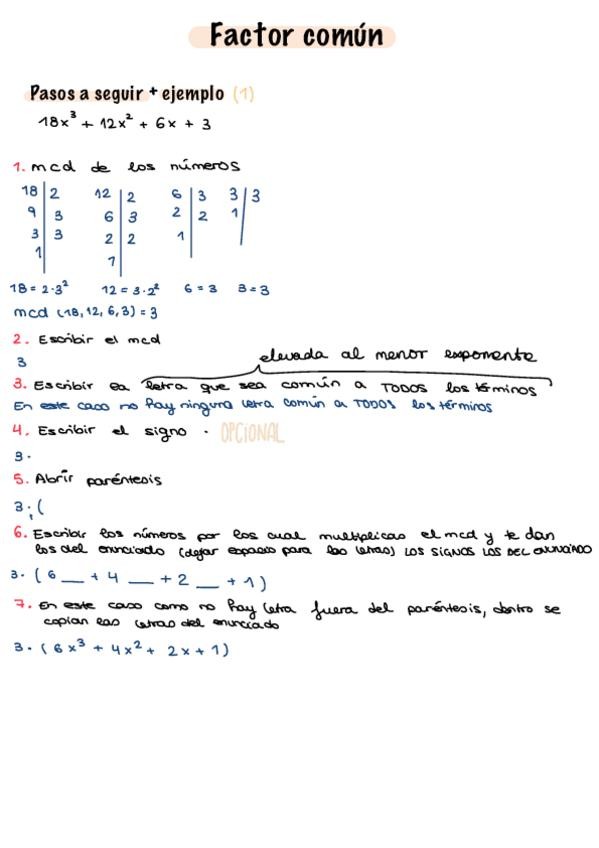 Factor común
Pasos a seguir + ejemplo (1)
18x³ + 12x² + 6x + 3
1. mcd de los números
18 | 2 12 | 2 6 | 3 3 | 3
9 | 3 6 | 3 2 | 2 1 |
3 | 3 2 | 2 1 |
1 | 1 |
18 = 2·3² 12 = 3·2² 6 = 3 3 = 3
mcd (18, 12, 6, 3) = 3
2. Escribir el mcd
3
elevada al menor exponente
3. Escribir la letra que sea común a TODOS los términos
En este caso no hay ninguna letra común a TODOS los términos
4. Escribir el signo · OPCIONAL
3 ·
5. Abrir paréntesis
3 · (
6. Escribir los números por los cual multiplicas el mcd y te dan
los del enunciado (dejar espacio para las letras) LOS SIGNOS LOS DEL ENUNCIADO
3 · ( 6 __ + 4 __ + 2 __ + 1 )
7. En este caso como no hay letra fuera del paréntesis, dentro se
copian las letras del enunciado
3 · ( 6x³ + 4x² + 2x + 1 )